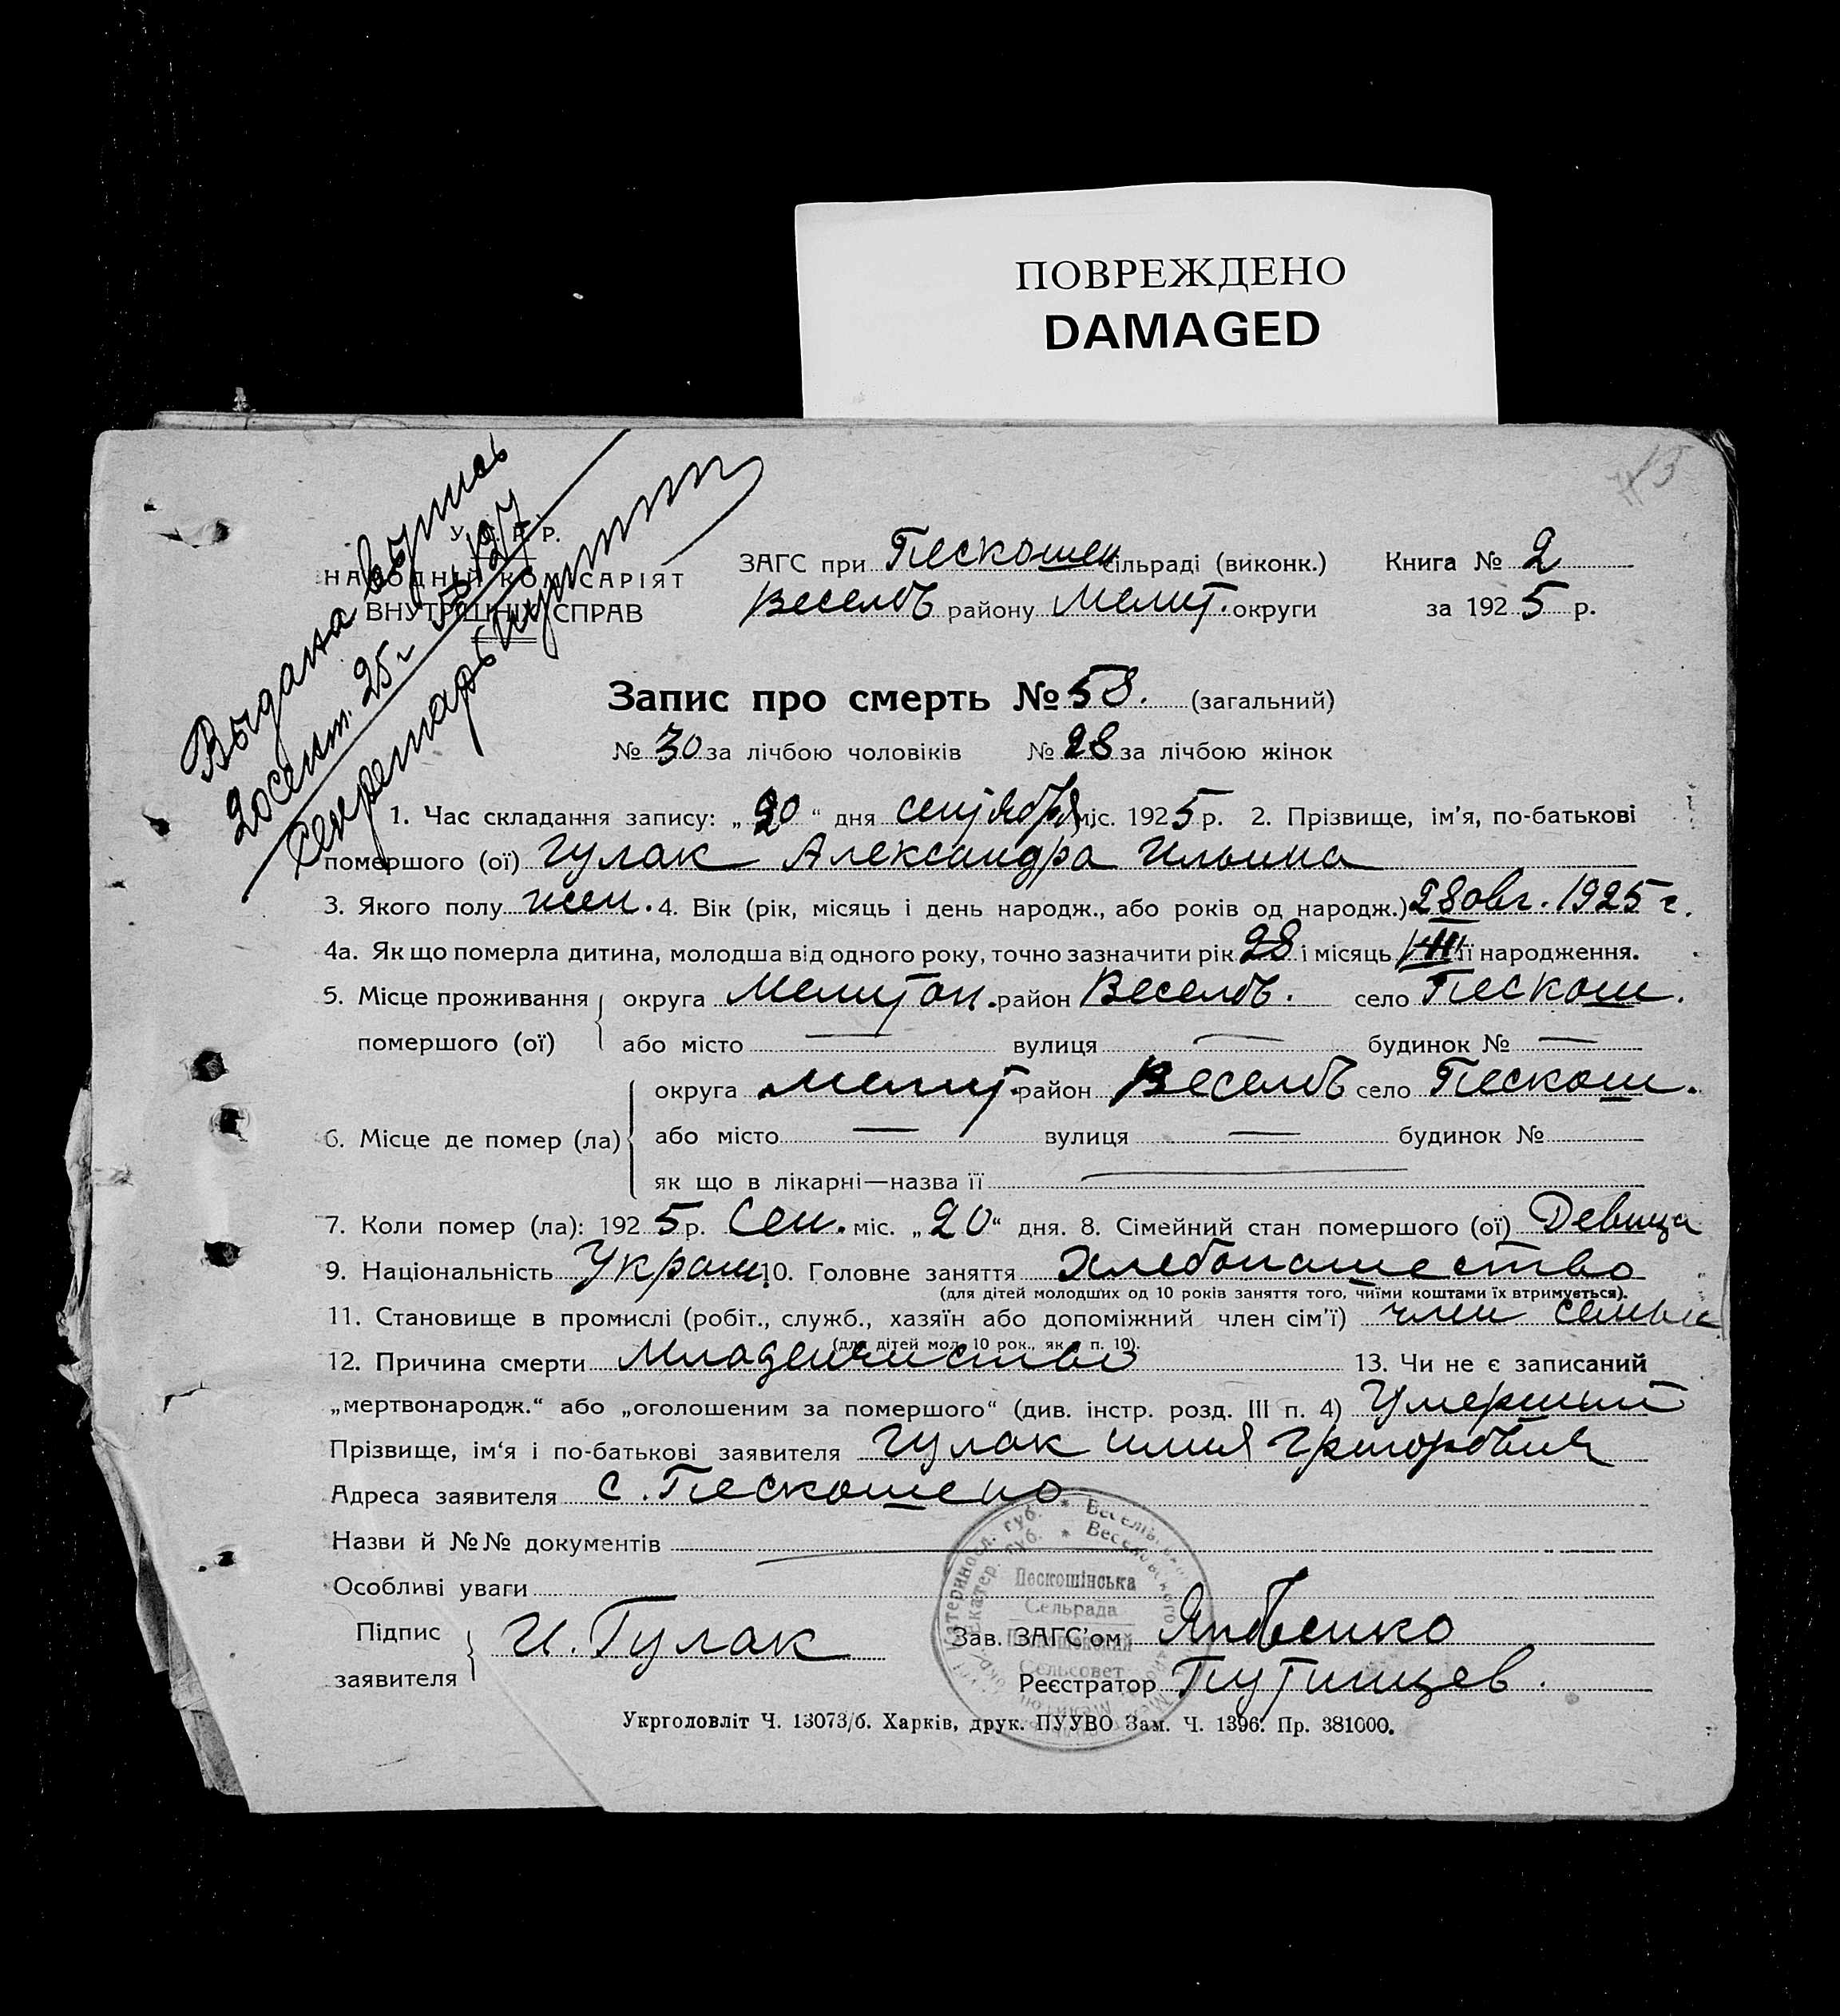 ПОВРЕЖДЕНО
DAMAGED
Выдана
20 сент. 25 г.
Секретарь
У. С. Р. Р.
НАРОДНИЙ КОМІСАРІЯТ
ВНУТРІШНІХ СПРАВ
ЗАГС при Пескошен сільраді (виконк.) Книга № 2
Веселов району Мелит. округи за 1925 р.
Запис про смерть № 58. (загальний)
№ 30 за лічбою чоловіків № 28 за лічбою жінок
1. Час складання запису: „20“ дня сентября міс. 1925 р. 2. Прізвище, ім'я, по-батькові
помершого (ої) Гулак Александра Ильина
3. Якого полу жен. 4. Вік (рік, місяць і день народж., або років од народж.) 28 авг. 1925 г.
4а. Як що померла дитина, молодша від одного року, точно зазначити рік 28 і місяць VIII її народження.
5. Місце проживання помершого (ої) округа Мелитоп. район Веселов. село Пескош.
або місто — вулиця — будинок № —
6. Місце де помер (ла) округа Мелит. район Веселов село Пескош.
або місто — вулиця — будинок №
як що в лікарні—назва її —
7. Коли помер (ла): 1925 р. Сен. міс. „20“ дня. 8. Сімейний стан помершого (ої) Девица
9. Національність Украин. 10. Головне заняття Хлебопашество
(для дітей молодших од 10 років заняття того, чиїми коштами їх втримується).
11. Становище в промислі (робіт., служб., хазяїн або допоміжний член сім'ї) член семьи
(для дітей мол. 10 рок., як в п. 10).
12. Причина смерти Младенчиство 13. Чи не є записаний
„мертвонародж.“ або „оголошеним за помершого“ (див. інстр. розд. III п. 4) Умерший
Прізвище, ім'я і по-батькові заявителя Гулак Илия Григорович
Адреса заявителя с. Пескошено
Назви й №№ документів —
Особливі уваги
Підпис заявителя И. Гулак Зав. ЗАГС'ом Яковенко
Реєстратор Путинцев.
Пескошінська
Сельрада
Сельсовет
Укрголовліт Ч. 13073/б. Харків, друк. ПУУВО Зам. Ч. 1396. Пр. 381000.